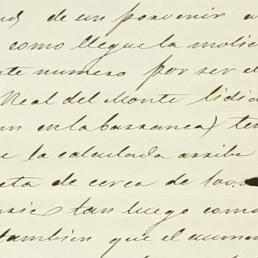 de un porvenir
como llegue la molie
te numero por ser el
Real del Monte lidia
en la barranca) ten
e la calculada arriba
ta de cerca de
tan luego como
tambien que el numer